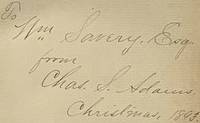 To
Wm Savery, Esq.
from
Chas. S. Adams,
Christmas,